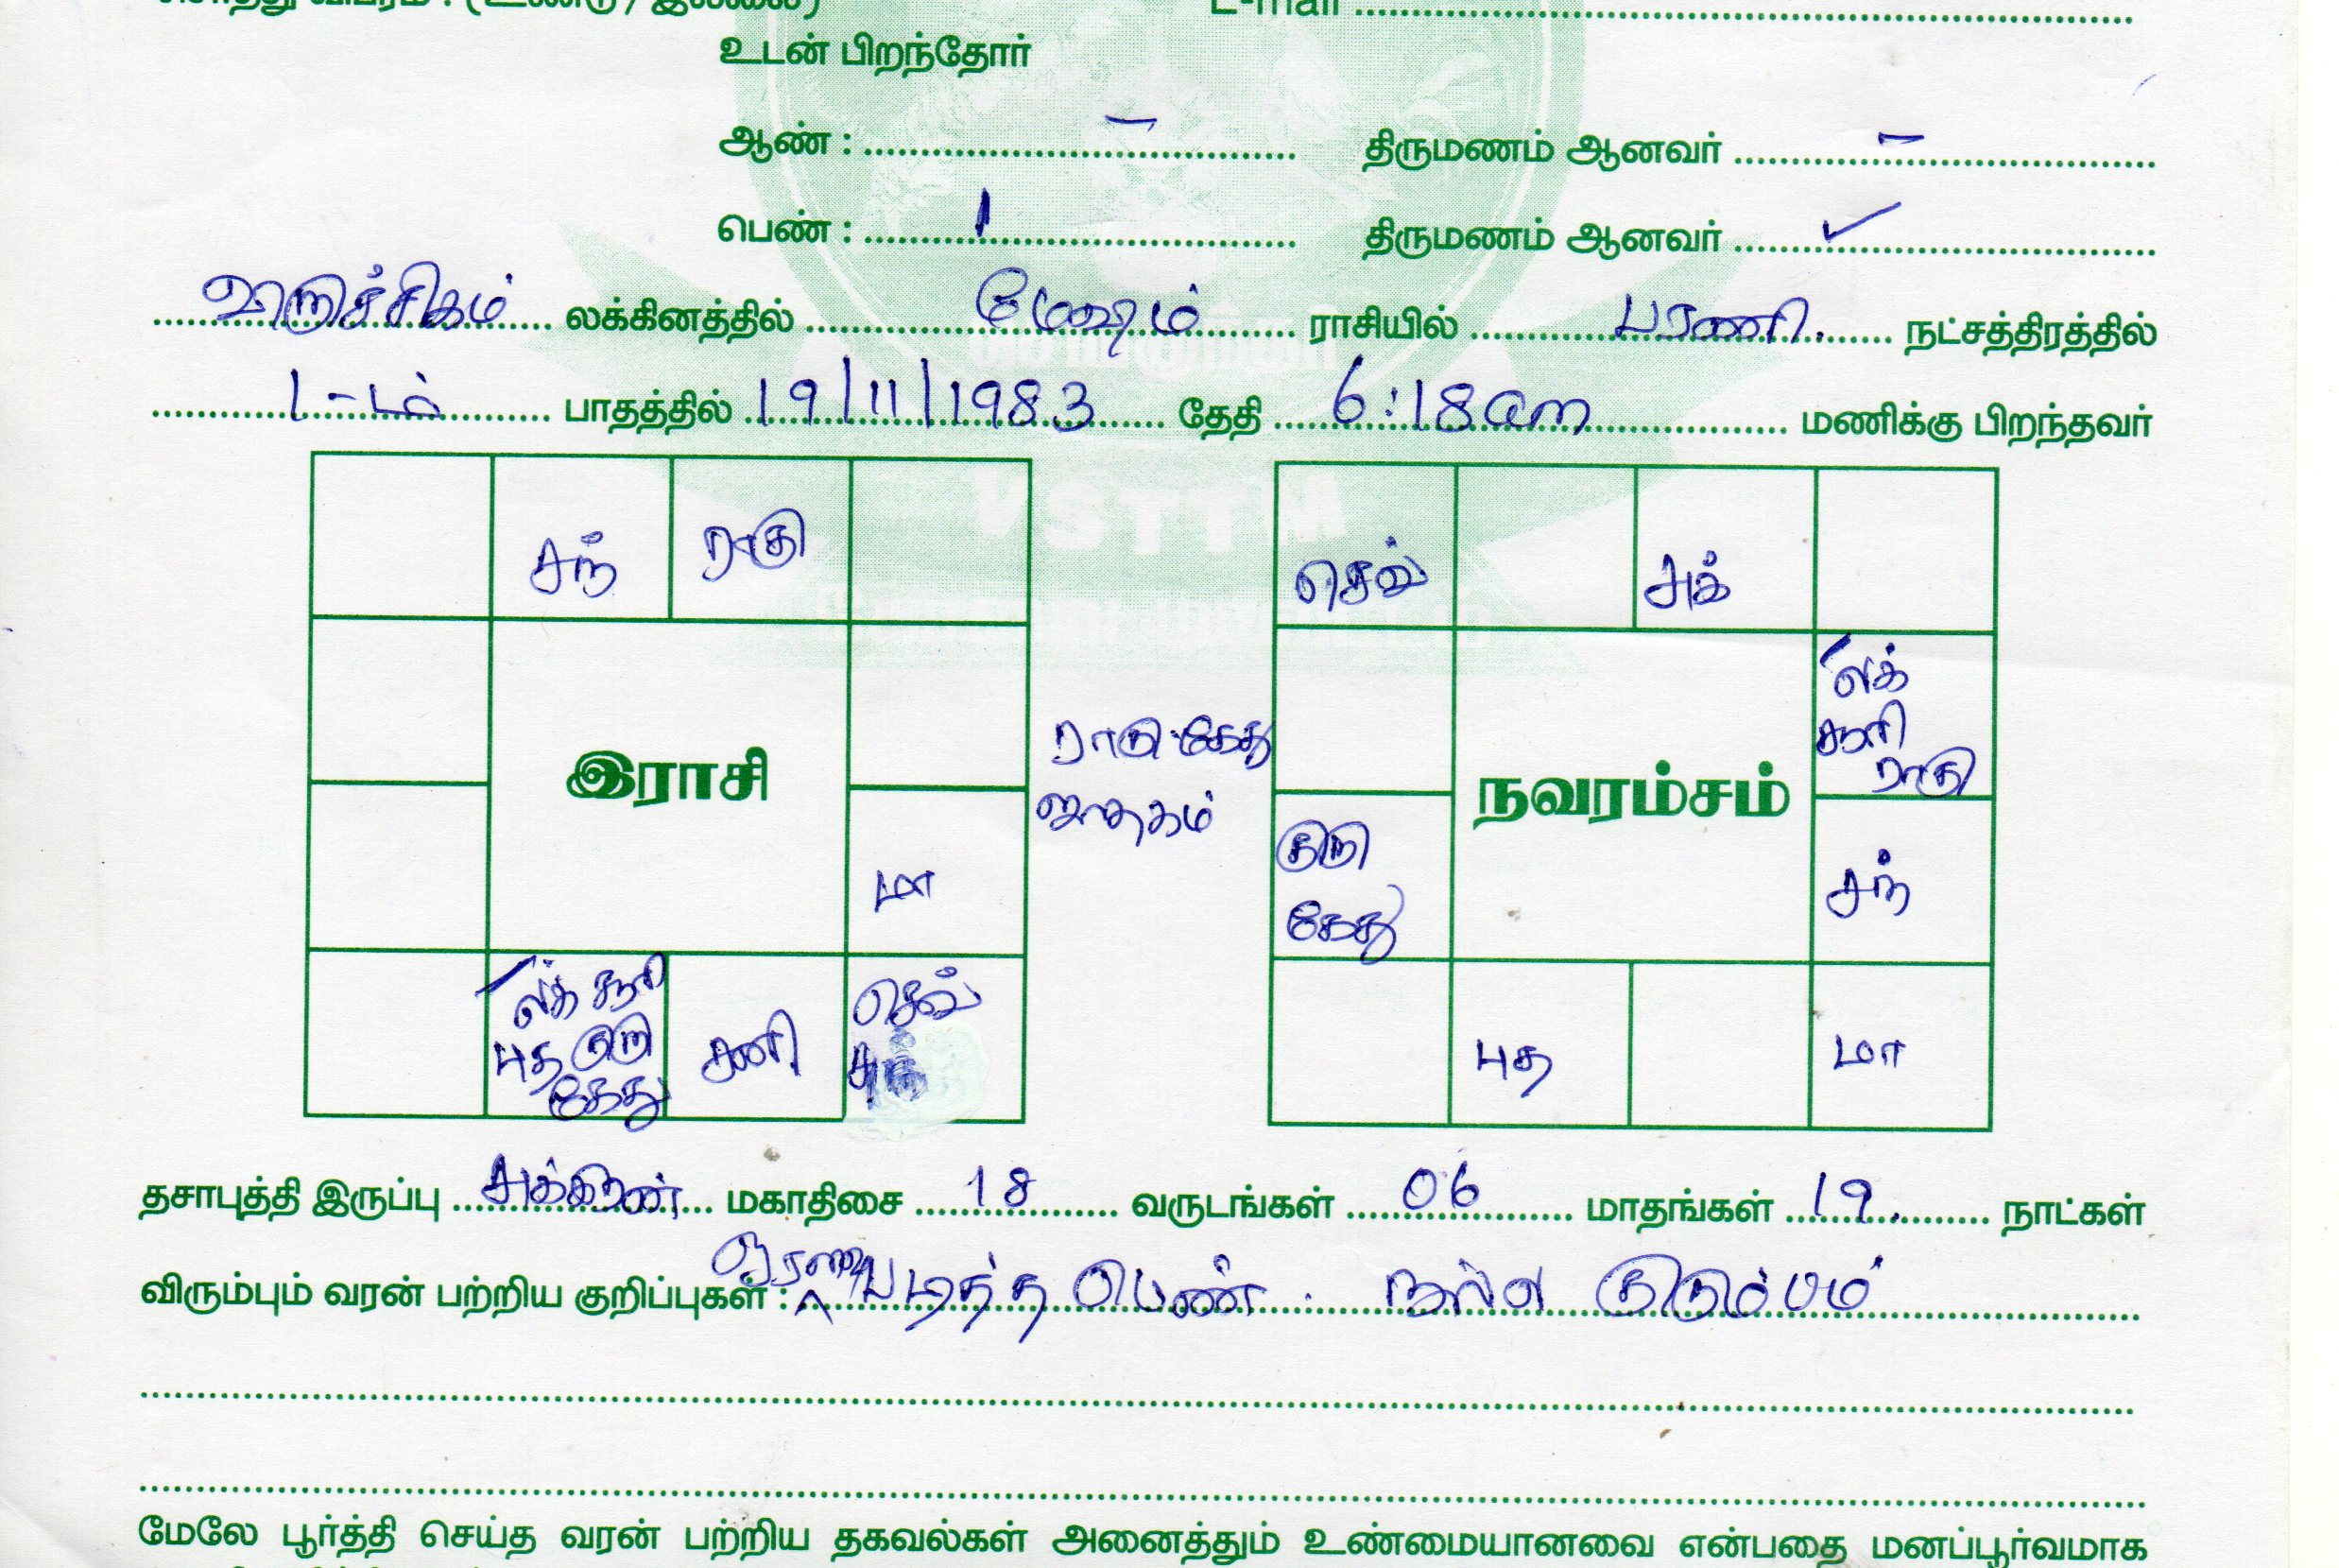 சொத்து விபரம் : (உண்டு / இல்லை) E-mail
உடன் பிறந்தோர்
ஆண் : – திருமணம் ஆனவர் –
பெண் : 1 திருமணம் ஆனவர் ✓
விருச்சிகம் லக்கினத்தில் மேஷம் ராசியில் பரணி. நட்சத்திரத்தில்
1-ம் பாதத்தில் 19/11/1983 தேதி 6:18am மணிக்கு பிறந்தவர்
சந் ராகு
செவ் சுக்
இராசி
ராகு-கேது
ஜாதகம்
நவரம்சம்
லக்
சூரி
ராகு
மா
குரு
கேது
சந்
லக் சூரி
புத குரு
கேது
சனி
செவ்
சுக்
புத மா
தசாபுத்தி இருப்பு சுக்கிரன் மகாதிசை 18 வருடங்கள் 06 மாதங்கள் 19. நாட்கள்
விரும்பும் வரன் பற்றிய குறிப்புகள் : படித்த பெண். நல்ல குடும்பம்
மேலே பூர்த்தி செய்த வரன் பற்றிய தகவல்கள் அனைத்தும் உண்மையானவை என்பதை மனப்பூர்வமாக